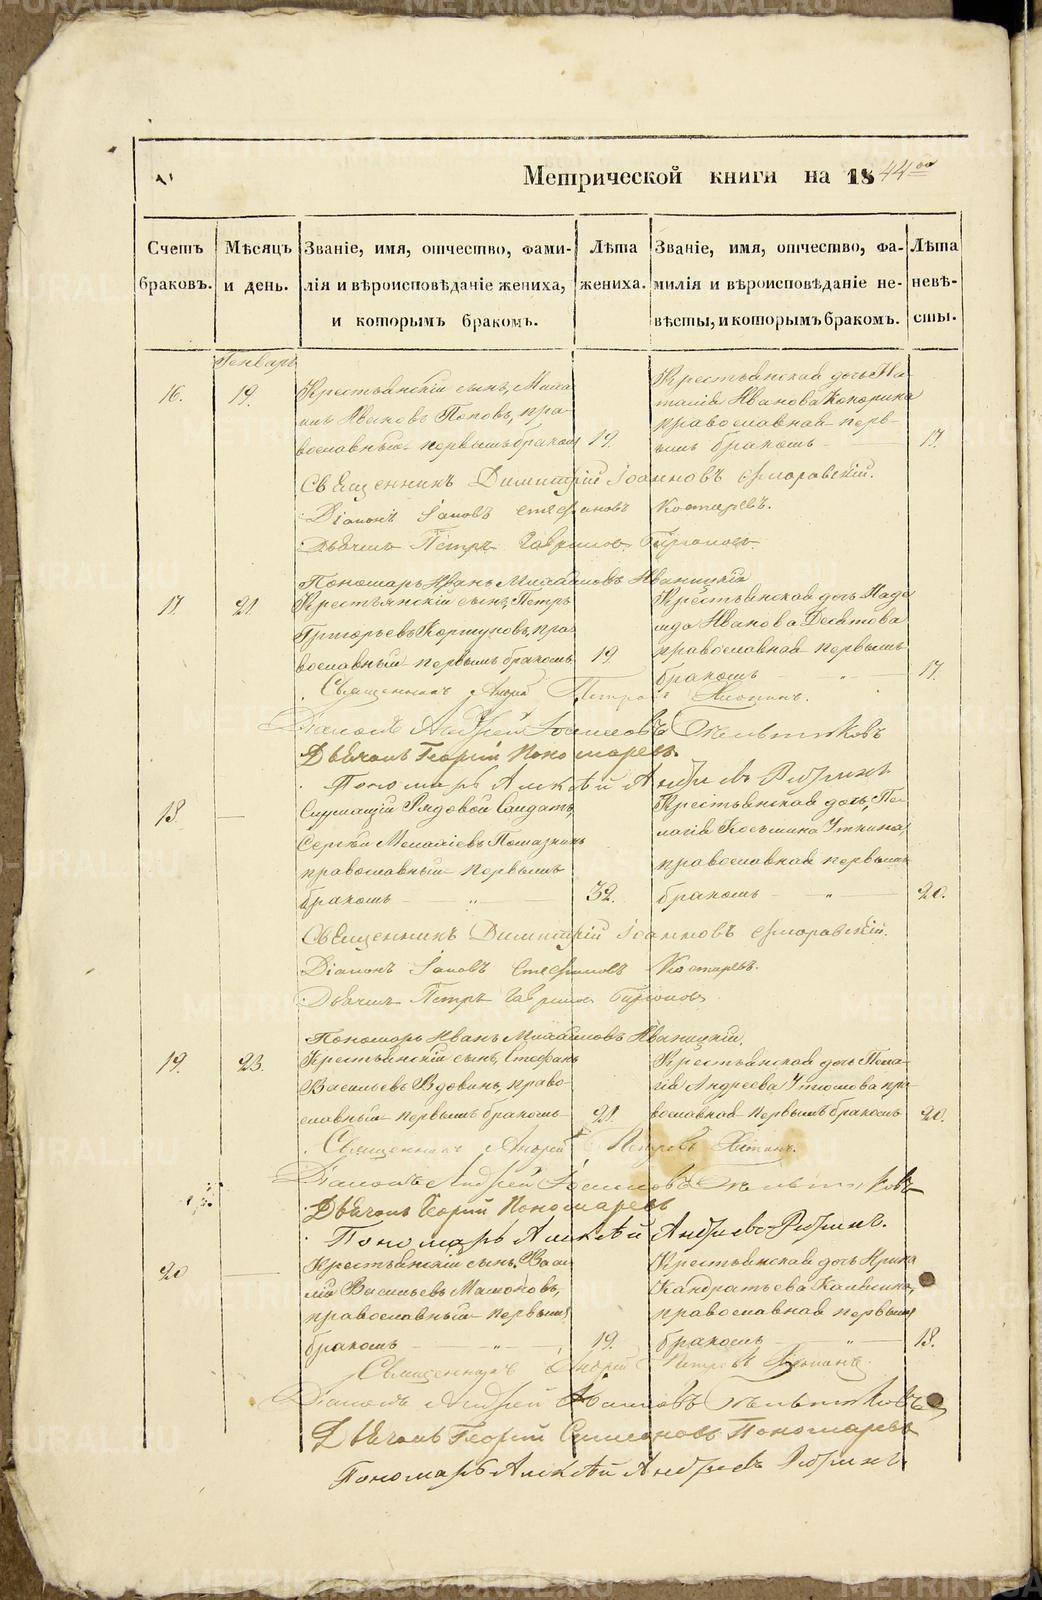 Метрической книги на 1844го
Счетъ браковъ.
Мѣсяцъ и день.
Званіе, имя, отчество, фамилія и вѣроисповѣданіе жениха, и которымъ бракомъ.
Лѣта жениха.
Званіе, имя, отчество, фамилія и вѣроисповѣданіе невѣсты, и которымъ бракомъ.
Лѣта невѣсты.
Генварь
16. 19. Крестьянскій сынъ, Миха-
илъ Ивановъ Поповъ, пра-
вославный первымъ бракомъ 19.
Крестьянская дочь На-
талія Иванова
православная перв-
ымъ бракомъ 17.
Священникъ Димитрій Іоанновъ
Діаконъ Іаковъ Стефановъ Костаревъ.
Дьячекъ Петръ Гавриловъ
Пономарь Иванъ Михайловъ Иваницкій
17. 21. Крестьянскій сынъ, Петръ
Григорьевъ Коршуновъ, пра-
вославный первымъ бракомъ 19.
Крестьянская дочь Наде-
жда Иванова Десятова
православная первымъ
бракомъ 17.
Священникъ Андрей Петровъ
Діаконъ Андрей
Дьячекъ Георгій Пономаревъ.
Пономарь Алексѣй Андреевъ
18. Служащій Рядовой Солдатъ,
Сергѣй
православный первымъ
бракомъ 32.
Крестьянская дочь, Пе-
лагія Косьмина Уткина,
православная первымъ
бракомъ 20.
Священникъ Димитрій Іоанновъ
Діаконъ Іаковъ Стефановъ Костаревъ.
Дьячекъ Петръ Гавриловъ
Пономарь Иванъ Михайловъ Иваницкій.
19. 23. Крестьянскій сынъ, Стефанъ
Васильевъ Вдовинъ, право-
славный первымъ бракомъ 21.
Крестьянская дочь Пела-
гія Андреева пра-
вославная первымъ бракомъ 20.
Священникъ Андрей Петровъ
Діаконъ Андрей
Дьячекъ Георгій Пономаревъ
Пономарь Алексѣй Андреевъ
20 Крестьянскій сынъ, Васи-
лій Васильевъ Мамоновъ,
православный первымъ
бракомъ 19.
Крестьянская дочь Ирина
Кандратьева Калинина,
православная первымъ
бракомъ 18.
Священникъ Андрей Петровъ
Діаконъ Андрей
Дьячекъ Георгій Симеоновъ Пономаревъ
Пономарь Алексѣй Андреевъ
METRIKI.GASO-URAL.RU